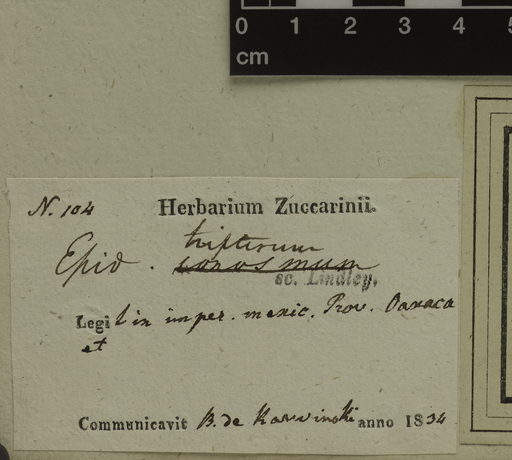 0 1 2 3 4 5
cm
N. 104 Herbarium Zuccarinii.
tripterum
Epid.
sc. Lindley.
Legit in imper. mexic. Prov. Oaxaca
et
Communicavit B. de Karwinski anno 1834